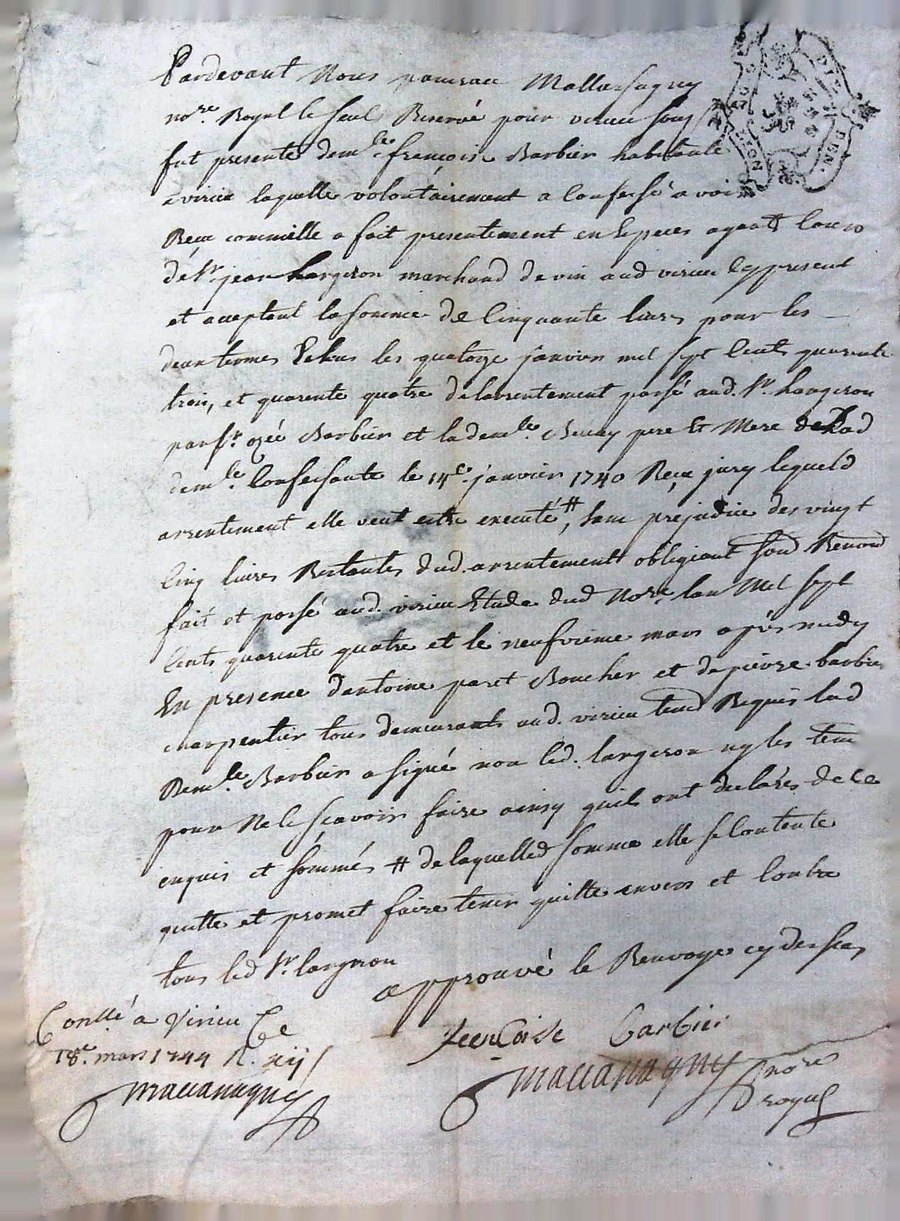 Pardevant Nous
nore. Royal le seul Reservé pour virieu sousig
fut presente demlle françoise Barbier habitante
a virieu laquelle volontairement a confessé avoir
Reçu comme elle a fait presentement en Especes
de Sr. jean Largeron marchand de vin aud virieu cy present
et acceptant la somme de Cinquante livres pour les
deux termes Echus les quatorze janvier mil sept Cents quarente
trois, et quarente quatre de larrentement passé aud. Sr. Largeron
par Sr. Barbier et la demlle. pere Et Mere de Lad
demlle. Confessante le 14e. janvier 1740 Reçu lequeld
arrentement elle veut estre executé #, sans prejudice des vingt
Cinq livres Restantes dud. arrentement obligeant sousd Renond
fait et passé aud. virieu Etude dud Nore. lan Mil sept
Cents quarente quatre et le neufvieme mars après midy
En presence dantoine paret Boucher et de pierre barbier
charpentier tous demeurants aud. virieu temd Requis lad
Demlle. Barbier a signé non led. largeron ny les tem
pour Ne le scavoir faire ainsy quils ont declarés de ce
enquis et sommés # de laquelled somme elle se Contente
quitte et promet faire tenir quitte envers et Contre
tous led Sr. largeron
approuvé le Renvoye cy dessus
Conllé a Virieu Ce
18e. mars 1744 R. xij s
francoise barbier
nore
royal